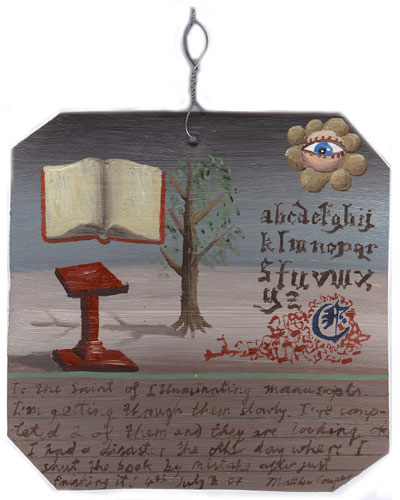 abcdefghij
klmnopqr
stuvwx
yz
To the Saint of Illuminating manuscripts.
I'm getting through them slowly. I've comp-
leted 2 of them and they are looking ok
I had a disaster the other day where I
shut the book by mistake after just
it! 4th July 07 Matthew Couper